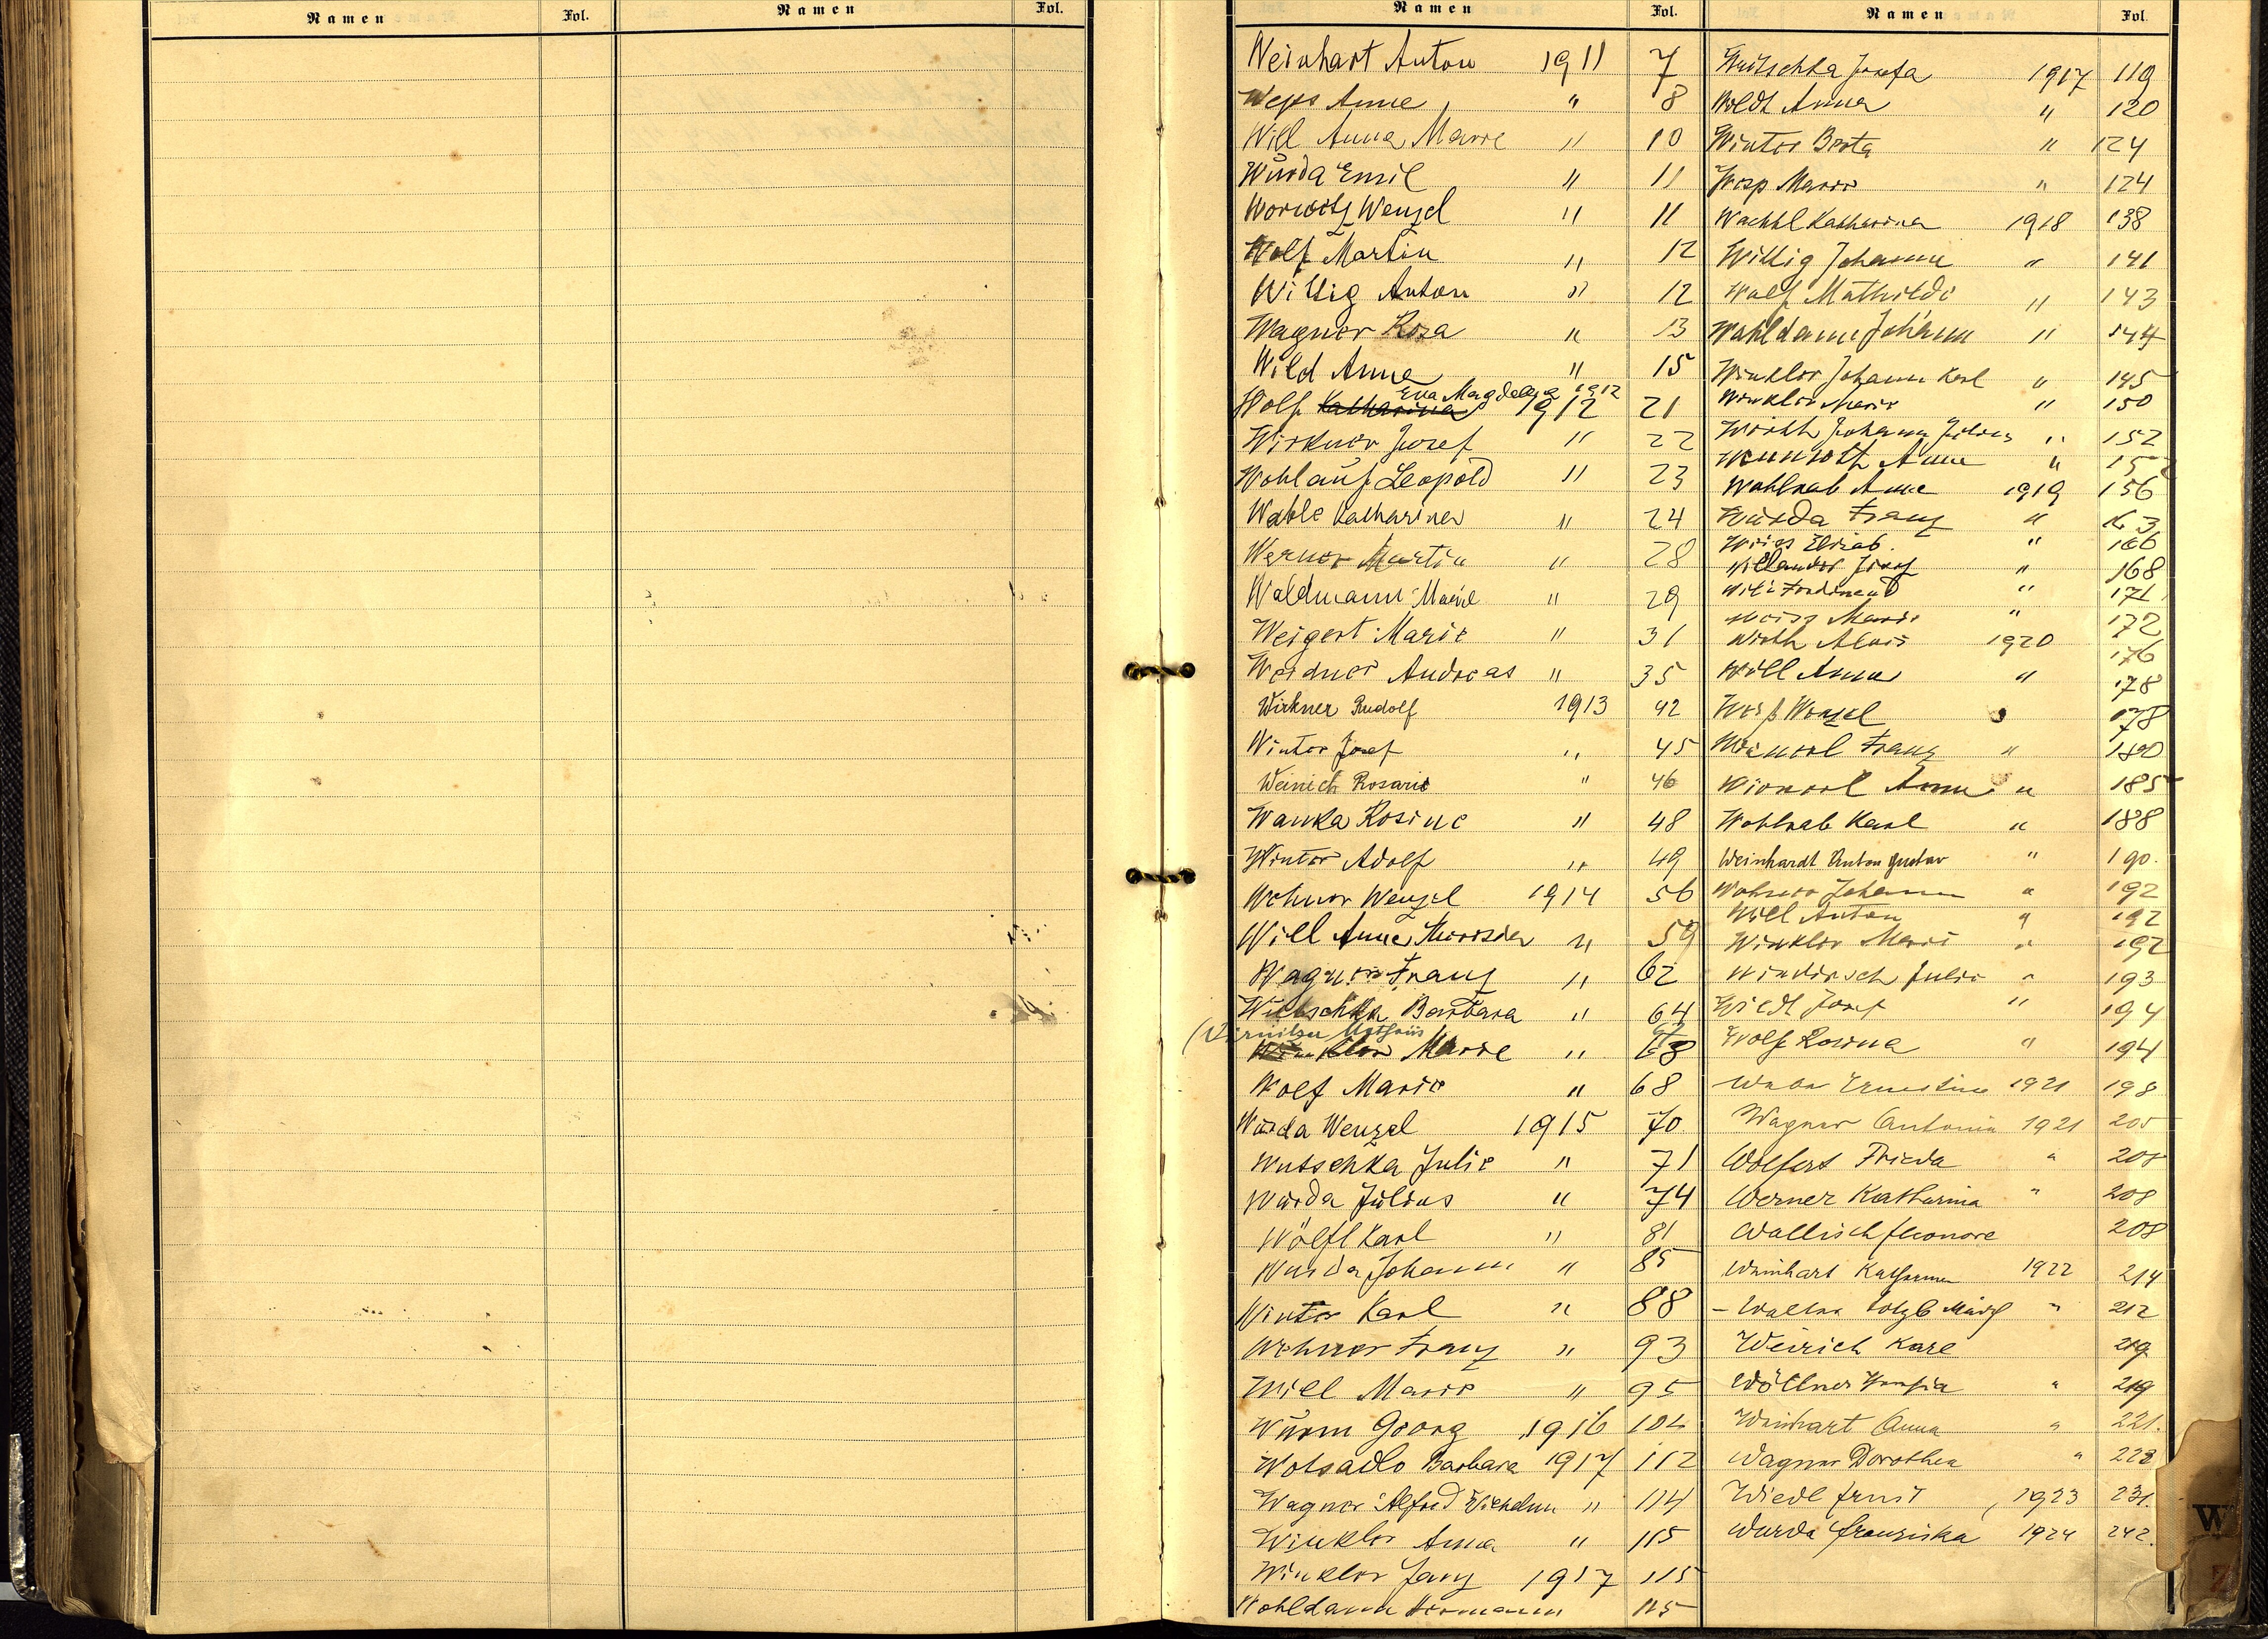 Namen Fol. Namen Fol.
Namen Fol. Namen Fol.
Weinhart Anton 1911 7
Weps Anne " 8
Will Anna Marie " 10
Wurda Emil " 11
Worwitz Wenzel " 11
Wolf Martin " 12
Willig Anton " 12
Wagner Rosa " 13
Wild Anna " 15
Eva Magdalena 1912
Wolf Katharina 1912 21
Wirkner Josef " 22
Wohlauf Leopold " 23
Wahle Katharina " 24
Werner Martin " 28
Waldmann Marie " 29
Weigert Marie " 31
Weidner Andreas " 35
Wirkner Rudolf 1913 42
Winter Josef " 45
Weinich Rosarie " 46
Wanka Rosine " 48
Winter Adolf " 49
Wehner Wenzel 1914 56
Will Anna Theresia " 59
Wagner Franz " 62
Wutschka Barbara " 64
Mathäus
Winkler Marie " 68
Wolf Marie " 68
Wurda Wenzel 1915 70
Wutschka Julie " 71
Wurda Julius " 74
Wölfl Karl " 81
Wurda Johann " 85
Winter Karl " 88
Wehner Franz " 93
Will Marie " 95
Wurm Georg 1916 104
Wotsadlo Barbara 1917 112
Wagner Alfred Wilhelm " 114
Winkler Anna " 115
Winkler 1917 115
Wohldann Hermann 115
Wutschka Josefa 1917 119
Woldt Anna " 120
Winter Berta " 124
Marie " 124
Wachtl Katharina 1918 138
Willig Johann " 141
Wolf Mathilde " 143
Wohldann Johann " 144
Winkler Johann Karl " 145
Winkler Marie " 150
Wirth Johann Julius " 152
Anna " 15
Wohlrab Anna 1919 156
Wurda Franz " 163
Weiss Elisab. " 166
Willander Josef " 168
Ferdinand " 171
Weiss Marie " 172
Wirth Alois 1920 176
Will Anna " 178
Weiß Wenzel " 178
Franz " 180
Anna " 185
Wohlrab Karl " 188
Weinhardt Anton Gustav " 190.
Wehner Johann " 192
Will Anton " 192
Winkler Marie " 192
Windirsch Julie " 193
Wiedl Josef " 194
Wolf Rosina " 194
Ernestine 1921 198
Wagner Antonia 1921 205
Wolfert Frieda " 208
Werner Katharina " 208
Wallisch Eleonore 208
Weinhart Katharina 1922 214
" 212
Weirich Karl 219
Wöllner " 219
Weinhart Anna " 221.
Wagner Dorothea " 228
Wiedl Ernst 1923 231.
Wurda Franziska 1924 242.
W
Z